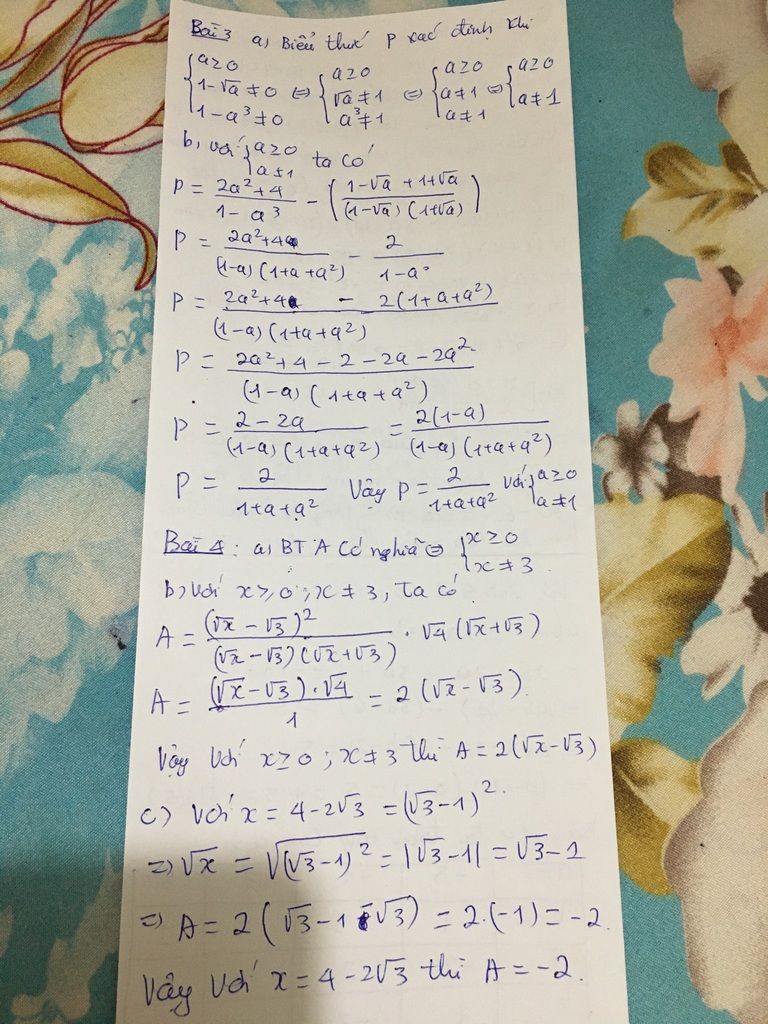 Bài 3 a) Biểu thức P xác định khi
{a≥0; 1-√a≠0; 1-a³≠0 ⇔ {a≥0; √a≠1; a³≠1 ⇔ {a≥0; a≠1; a≠1 ⇔ {a≥0; a≠1
b, với {a≥0; a≠1 ta có
P = (2a²+4)/(1-a³) - ((1-√a+1+√a)/((1-√a)(1+√a)))
P = (2a²+4)/((1-a)(1+a+a²)) - 2/(1-a)
P = (2a²+4 - 2(1+a+a²))/((1-a)(1+a+a²))
P = (2a²+4-2-2a-2a²)/((1-a)(1+a+a²))
P = (2-2a)/((1-a)(1+a+a²)) = 2(1-a)/((1-a)(1+a+a²))
P = 2/(1+a+a²) Vậy P = 2/(1+a+a²) với {a≥0; a≠1
Bài 4: a) BT A có nghĩa ⇔ {x≥0; x≠3.
b) với x≥0; x≠3, ta có
A = (√x-√3)²/((√x-√3)(√x+√3)) . √4(√x+√3)
A = (√x-√3).√4/1 = 2(√x-√3).
Vậy với x≥0; x≠3 thì A = 2(√x-√3)
c) với x = 4-2√3 = (√3-1)².
⇒ √x = √((√3-1)²) = |√3-1| = √3-1
⇒ A = 2(√3-1-√3) = 2.(-1) = -2.
Vậy với x = 4-2√3 thì A = -2.